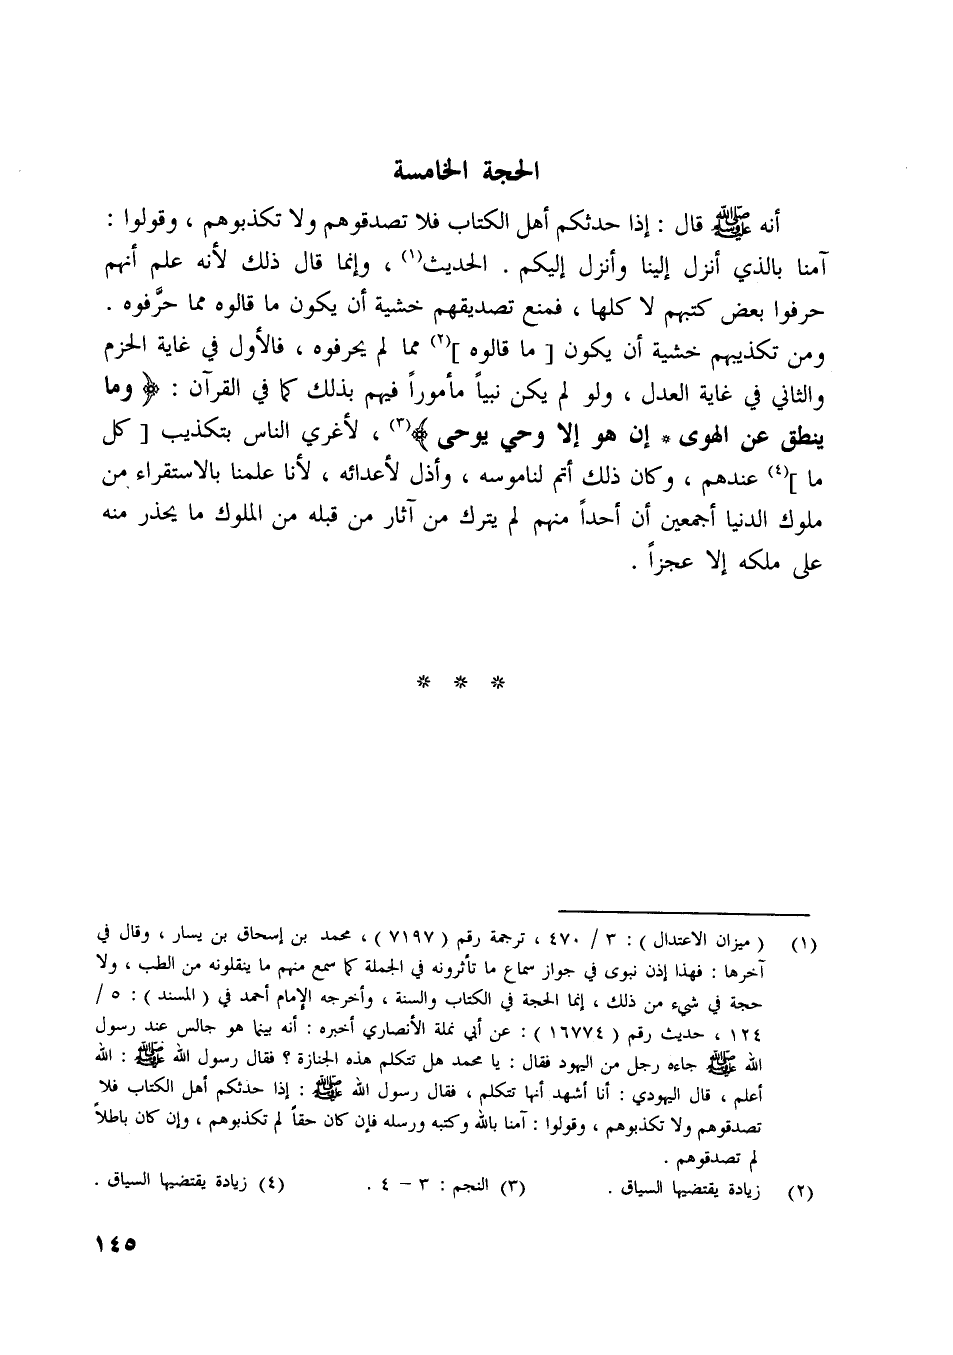 الحجة الخامسة
أنه ﷺ قال : إذا حدثكم أهل الكتاب فلا تصدقوهم ولا تكذبوهم ، وقولوا :
آمنا بالذي أنزل إلينا وأنزل إليكم . الحديث(١) ، وإنما قال ذلك لأنه علم أنهم
حرفوا بعض كتبهم لا كلها ، فمنع تصديقهم خشية أن يكون ما قالوه مما حرَّفوه .
ومن تكذيبهم خشية أن يكون [ ما قالوه ](٢) مما لم يحرفوه ، فالأول في غاية الحزم
والثاني في غاية العدل ، ولو لم يكن نبياً مأموراً فيهم بذلك كما في القرآن : ﴿ وما
ينطق عن الهوى * إن هو إلا وحي يوحى ﴾(٣) ، لأغري الناس بتكذيب [ كل
ما ](٤) عندهم ، وكان ذلك أتم لناموسه ، وأذل لأعدائه ، لأنا علمنا بالاستقراء من
ملوك الدنيا أجمعين أن أحداً منهم لم يترك من آثار من قبله من الملوك ما يحذر منه
على ملكه إلا عجزاً .
* * *
(١) ( ميزان الاعتدال ) : ٣ / ٤٧٠ ، ترجمة رقم ( ٧١٩٧ ) ، محمد بن إسحاق بن يسار ، وقال في
آخرها : فهذا إذن نبوى في جواز سماع ما تأثرونه في الجملة كما سمع منهم ما ينقلونه من الطب ، ولا
حجة في شيء من ذلك ، إنما الحجة في الكتاب والسنة ، وأخرجه الإمام أحمد في ( المسند ) : ٥ /
١٢٤ ، حديث رقم ( ١٦٧٧٤ ) : عن أبي نملة الأنصاري أخبره : أنه بينما هو جالس عند رسول
الله ﷺ جاءه رجل من اليهود فقال : يا محمد هل تتكلم هذه الجنازة ؟ فقال رسول الله ﷺ : الله
أعلم ، قال اليهودي : أنا أشهد أنها تتكلم ، فقال رسول الله ﷺ : إذا حدثكم أهل الكتاب فلا
تصدقوهم ولا تكذبوهم ، وقولوا : آمنا بالله وكتبه ورسله فإن كان حقاً لم تكذبوهم ، وإن كان باطلاً
لم تصدقوهم .
(٢) زيادة يقتضيها السياق . (٣) النجم : ٣ – ٤ . (٤) زيادة يقتضيها السياق .
١٤٥